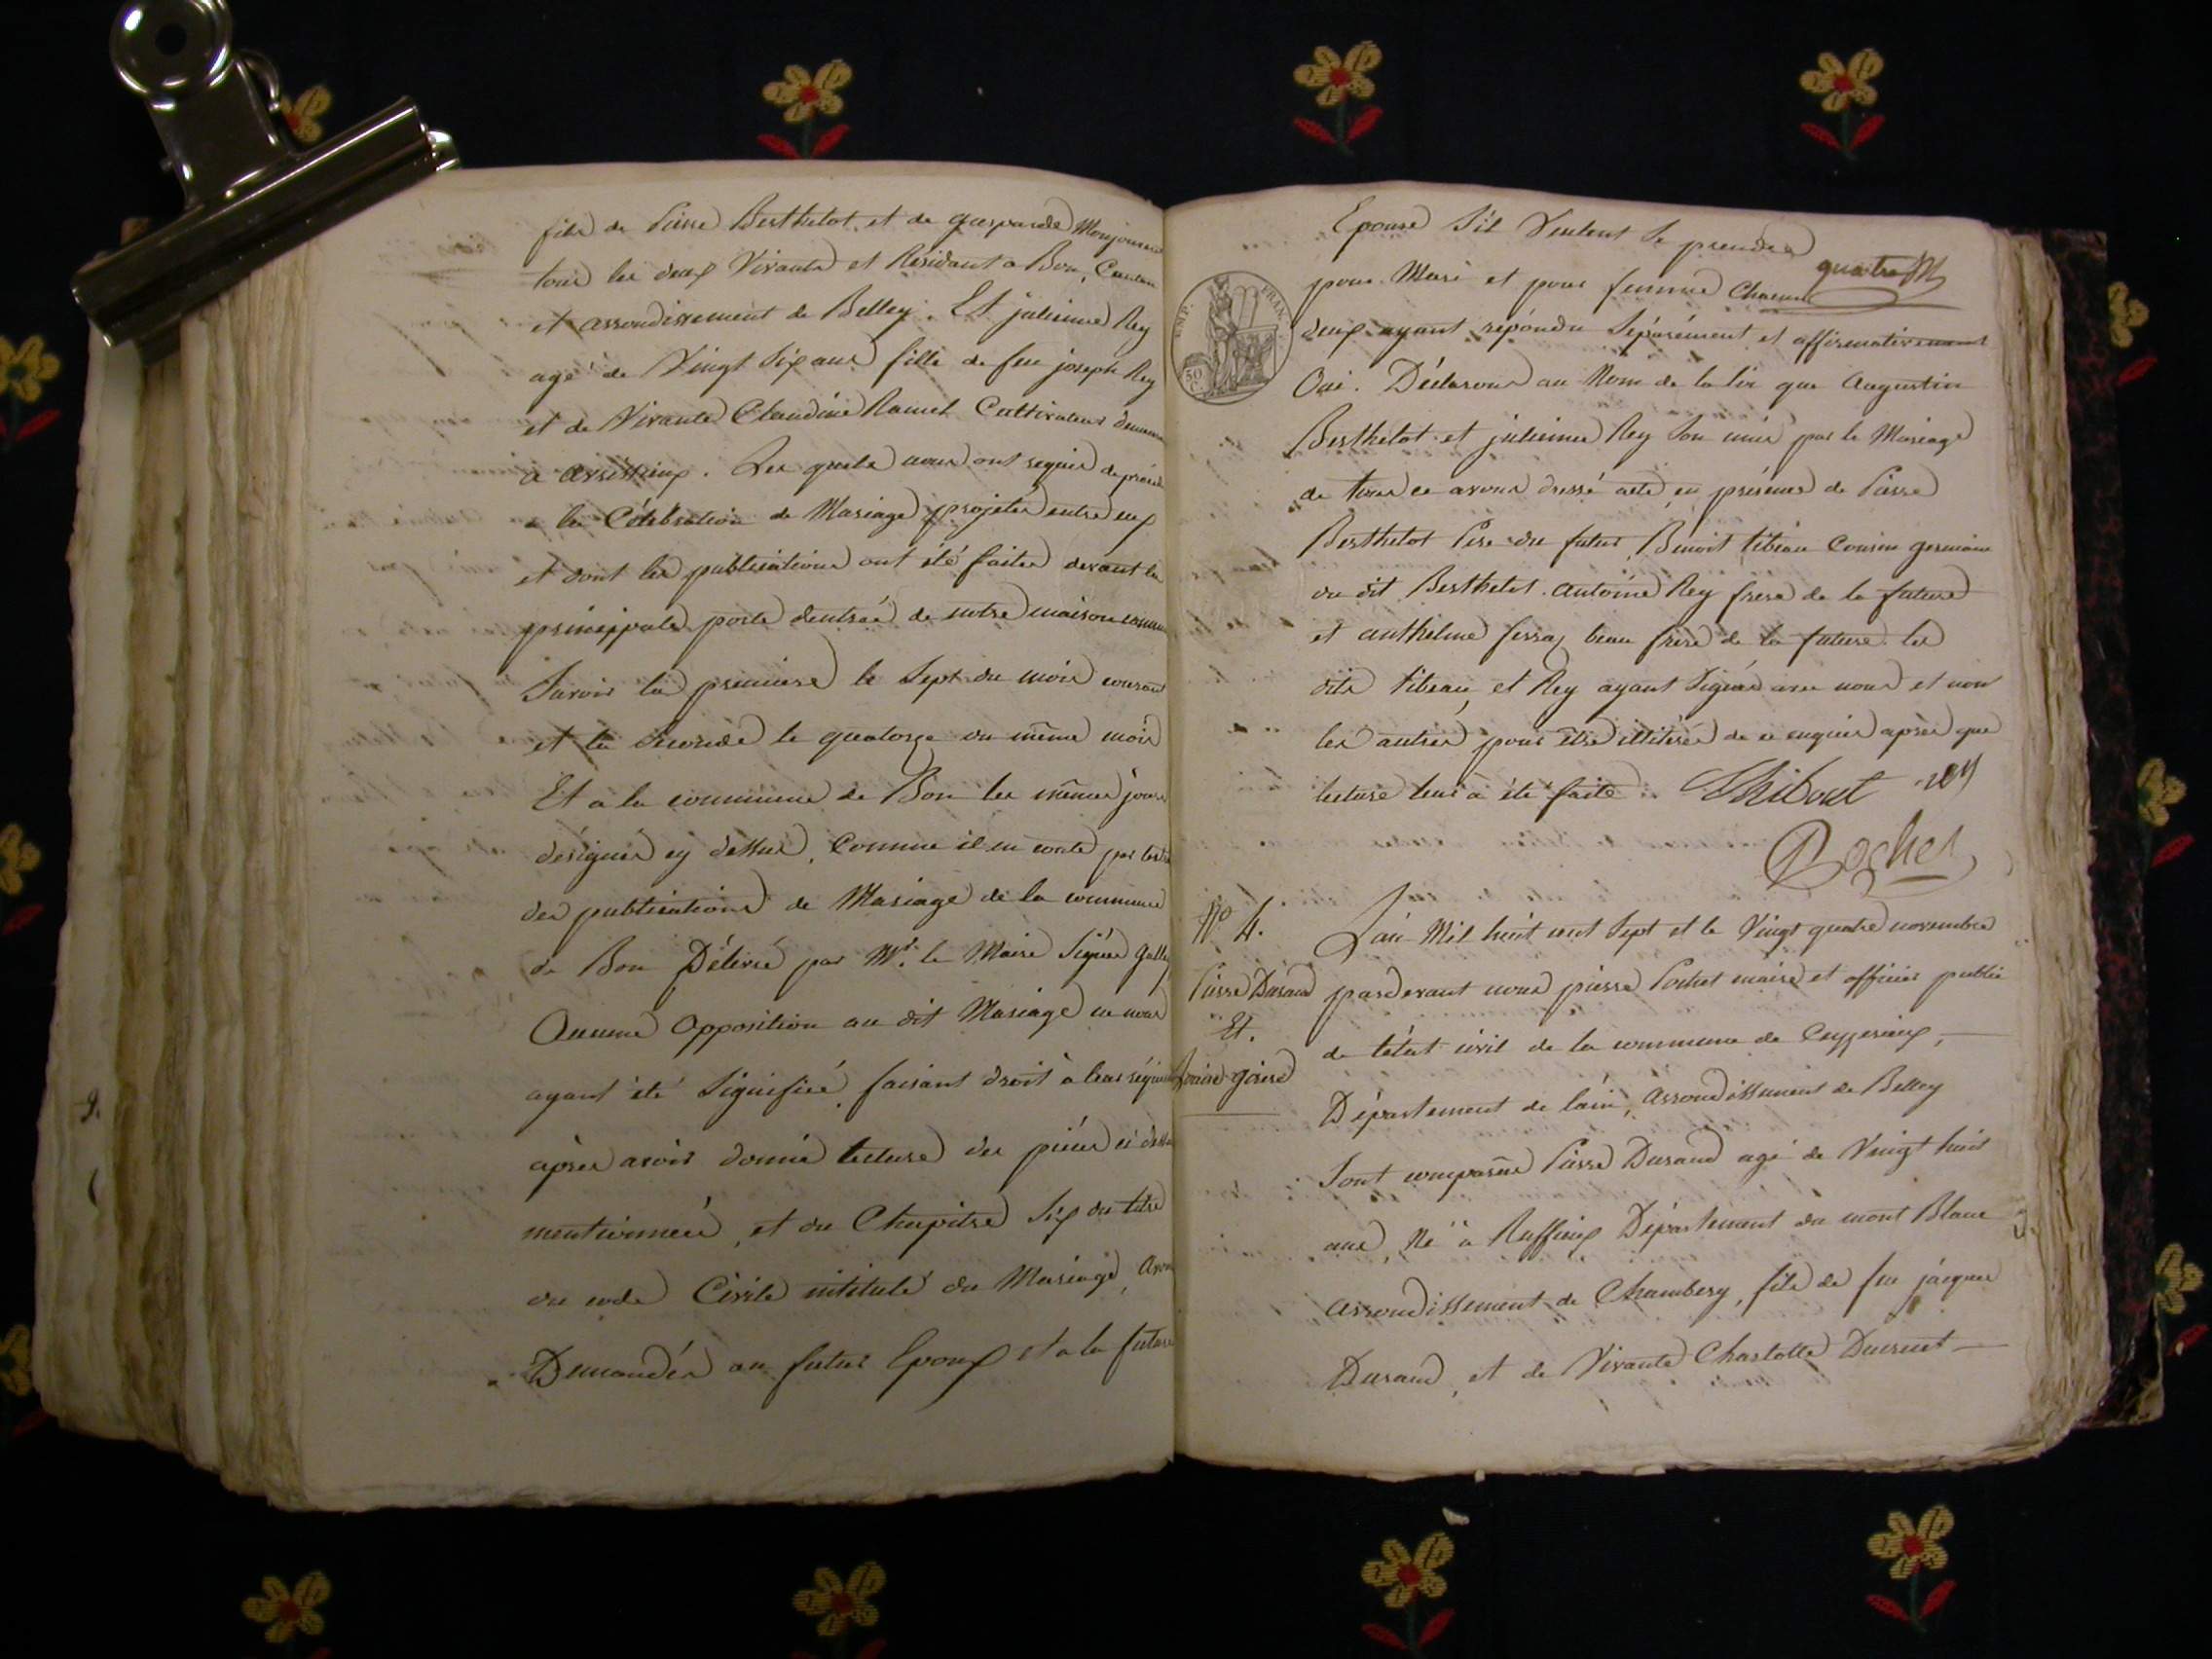 fils de Pierre Berthelot, et de gasparde Monjournal
tous les deux Vivants et Résidant a Bon, Canton
et arrondissement de Belley. Et julienne Rey
agé de Vingt Six ans fille de feu joseph Rey
et de Vivante Claudine Ramel Cultivateur
a Les quels nous ont requis de
a la Célébration de Mariage projetés entre eux
et dont les publications ont été faites devant la
principale porte dentrée de notre maison
Savoir la premiere le Sept du mois courant
et la Seconde le quatorze du même mois
Et a la commune de Bon les mêmes jours
désignés cy dessus, Comme il en conste par
des publications de Mariage de la commune
de Bon Délivré par Mr. le Maire Signés
Aucune Opposition au dit Mariage ne nous
ayant été Signifiée, faisant droit à leur
après avoir donné lecture des pièces ci dessus
mentionnées, et du Chapitre Six du titre
du code Civile intitulé du Mariage, Avons
Demandés au futur Epoux et a la future
Epouse S'il Veulent Se prendre
quatre
pour Mari et pour femme Chacun
deux ayant répondu Séparément et affirmativement
Oui. Déclarons au Nom de la loi que Augustin
Berthelot et julienne Rey Son unis par le Mariage
de tous ce avons dressé acte, en présence de Pierre
Berthelot Pere du futur, Benoit tibeau Cousin germain
du dit Berthelot. antoine Rey frere de la future
et anthelme ferraz beau frere de la future. les
dits tibeau, et Rey ayant Signés avec nous et non
les autres pour être illitérés de ce enquis après que
lecture leur à été faite. Thibout rey
EMP. FRAN.
50 C.
No 4.
Pierre Durand
Et.
L'an Mil huit cent Sept et le Vingt quatre novembre
pardevant nous pierre Pochet maire et officier public
de létat civil de la commune de Ceyzerieux,
Département de l'ain, arrondissement de Belley
Sont comparus Pierre Durand agé de Vingt huit
ans, Né à Ruffieux Département du mont Blanc
arrondissement de Chambery, fils de feu jacques
Durand, et de Vivante Charlotte Ducruet